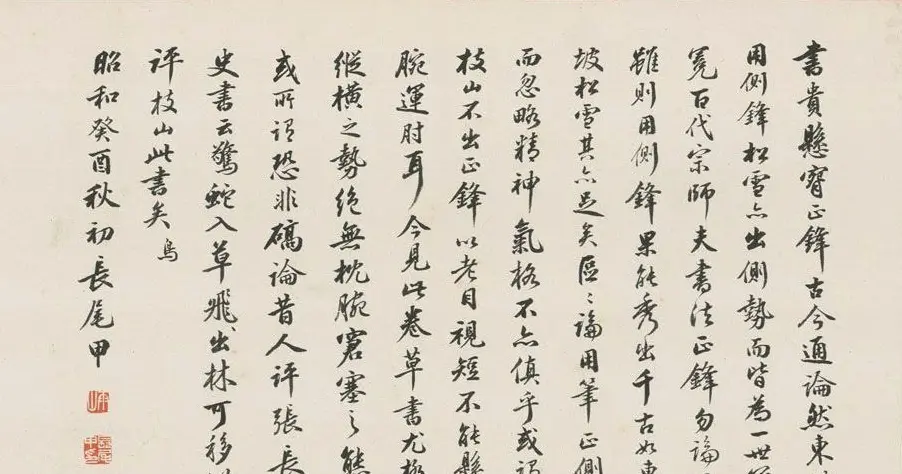 書貴懸腕正鋒古今通論然東
用側鋒松雪亦出側勢而皆為一世
冕百代宗師夫書法正鋒勿論
雖則用側鋒果能秀出千古如東
坡松雪其亦足矣區〻論用筆正側
而忽略精神氣格不亦傎乎或謂
枝山不出正鋒以老目視短不能懸
腕運肘耳今見此卷草書尤極
縱橫之勢絕無枕腕窘塞之態
或所謂恐非碻論昔人評張長
史書云驚蛇入草飛出林可移
評枝山此書矣
昭和癸酉秋初長尾甲